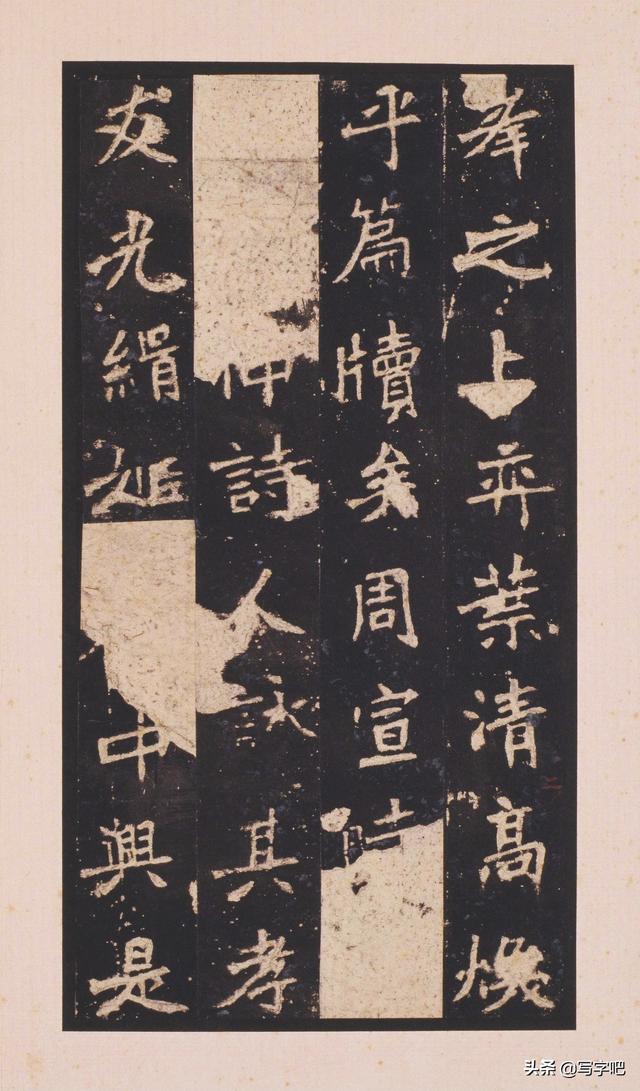 峯之上弈葉清高煥
乎篇牘矣周宣
仲詩人詠其孝
友光緝姬中興是
头条 @写字吧